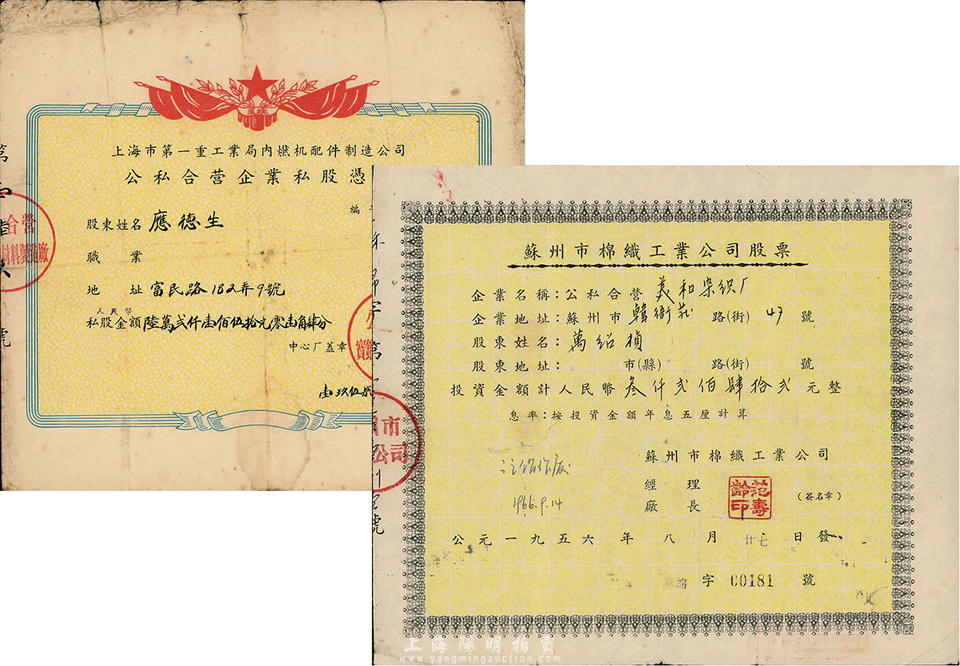 上海市第一重工業局内燃机配件制造公司
公私合营企業私股憑
編
股東姓名 應德生
職業
地址 富民路182弄9號
人民幣
私股金額 陸萬贰仟壹佰伍拾元零壹角肆分
中心厂蓋章
第
合營
號
蘇州市棉織工業公司股票
企業名稱：公私合营 美和染织厂
企業地址：蘇州市 韓衙莊 路(街) 47 號
股東姓名：萬紹楨
股東地址： 市(縣) 路(街) 號
投資金額計人民幣 叁仟贰佰肆拾贰 元整
息率：按投資金額年息五厘計算
注销作废
1966.9.14
蘇州市棉織工業公司
經理
廠長
范壽齡印
(簽名章)
公元一九五六年八月廿七日發
字 00181 號
州市
公司
號
上海陽明拍賣
www.yangmingauction.com